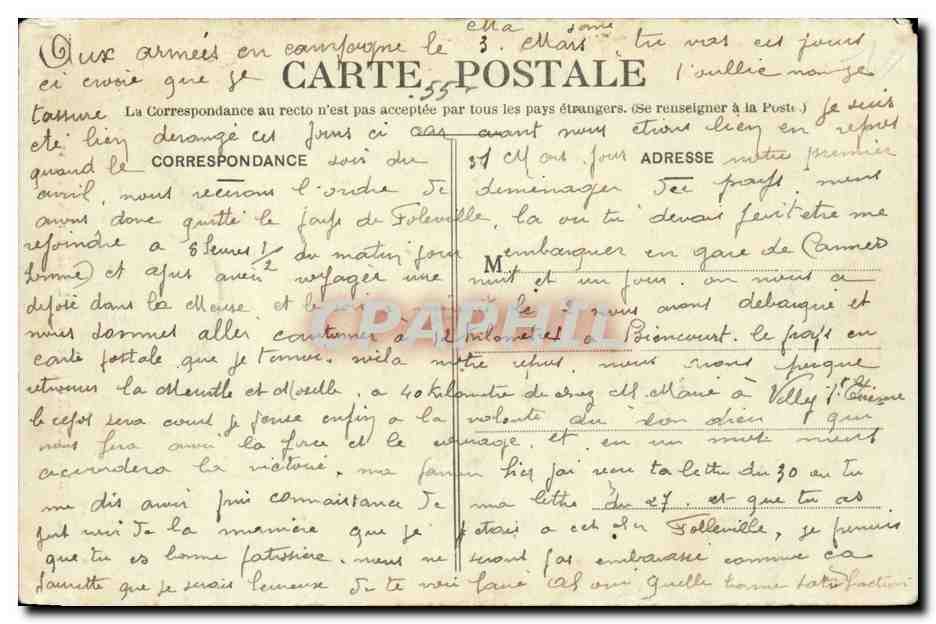 Ma
Aux armées en campagne le 3. Mars, tu vas ces jours
ci croire que je l'oublie non je
CARTE POSTALE
55
tassure
La Correspondance au recto n'est pas acceptée par tous les pays étrangers. (Se renseigner à la Poste.)
je suis
eté bien derangé ces jours ci car avant nous etions bien en repos
quand le soir du 31 Mars. jour notre premier
CORRESPONDANCE
ADRESSE
avril, nous recevons l'ordre de demenager de pays, nous
avons donc quitté le pays de Foleville, la ou tu devais peut etre me
rejoindre a 8 heures 1/2 du matin pour embarquer en gare de
M
et apres avoir voyager une nuit et un jour. on nous a
deposé dans la Meuse et le 2 nous avons debarqué et
nous sommes aller cantonner a 12 kilometres a Boncourt. le pays en
carte postale que je t'envoi. voila notre repos. nous vons presque
retrouver la Meurthe et Moselle. a 40 kilometre de chez M. Marie à Velley St Etienne
le repos sera court je pense enfin a la volonte du bon dieu qui
nous fera avoir la force et le courage. et en un mot nous
accordera la victoire. ma hier jai recu ta lettre du 30 ou tu
me dis avoir pris connaissance de ma lettre du 27. et que tu as
put voir de la manière que je etais a cet Folleville, je
que tu es bonne patissière. nous ne serons pas embarassé comme ca
que je serais heureuse de te voir faire as oui quelle bonne satisfaction
CPAPHIL